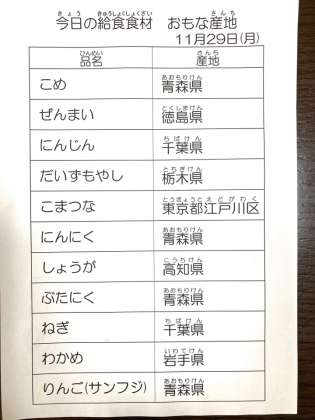 今日の給食食材　おもな産地
11月29日(月)
品名　産地
こめ　青森県
ぜんまい　徳島県
にんじん　千葉県
だいずもやし　栃木県
こまつな　東京都江戸川区
にんにく　青森県
しょうが　高知県
ぶたにく　青森県
ねぎ　千葉県
わかめ　岩手県
りんご(サンフジ)　青森県